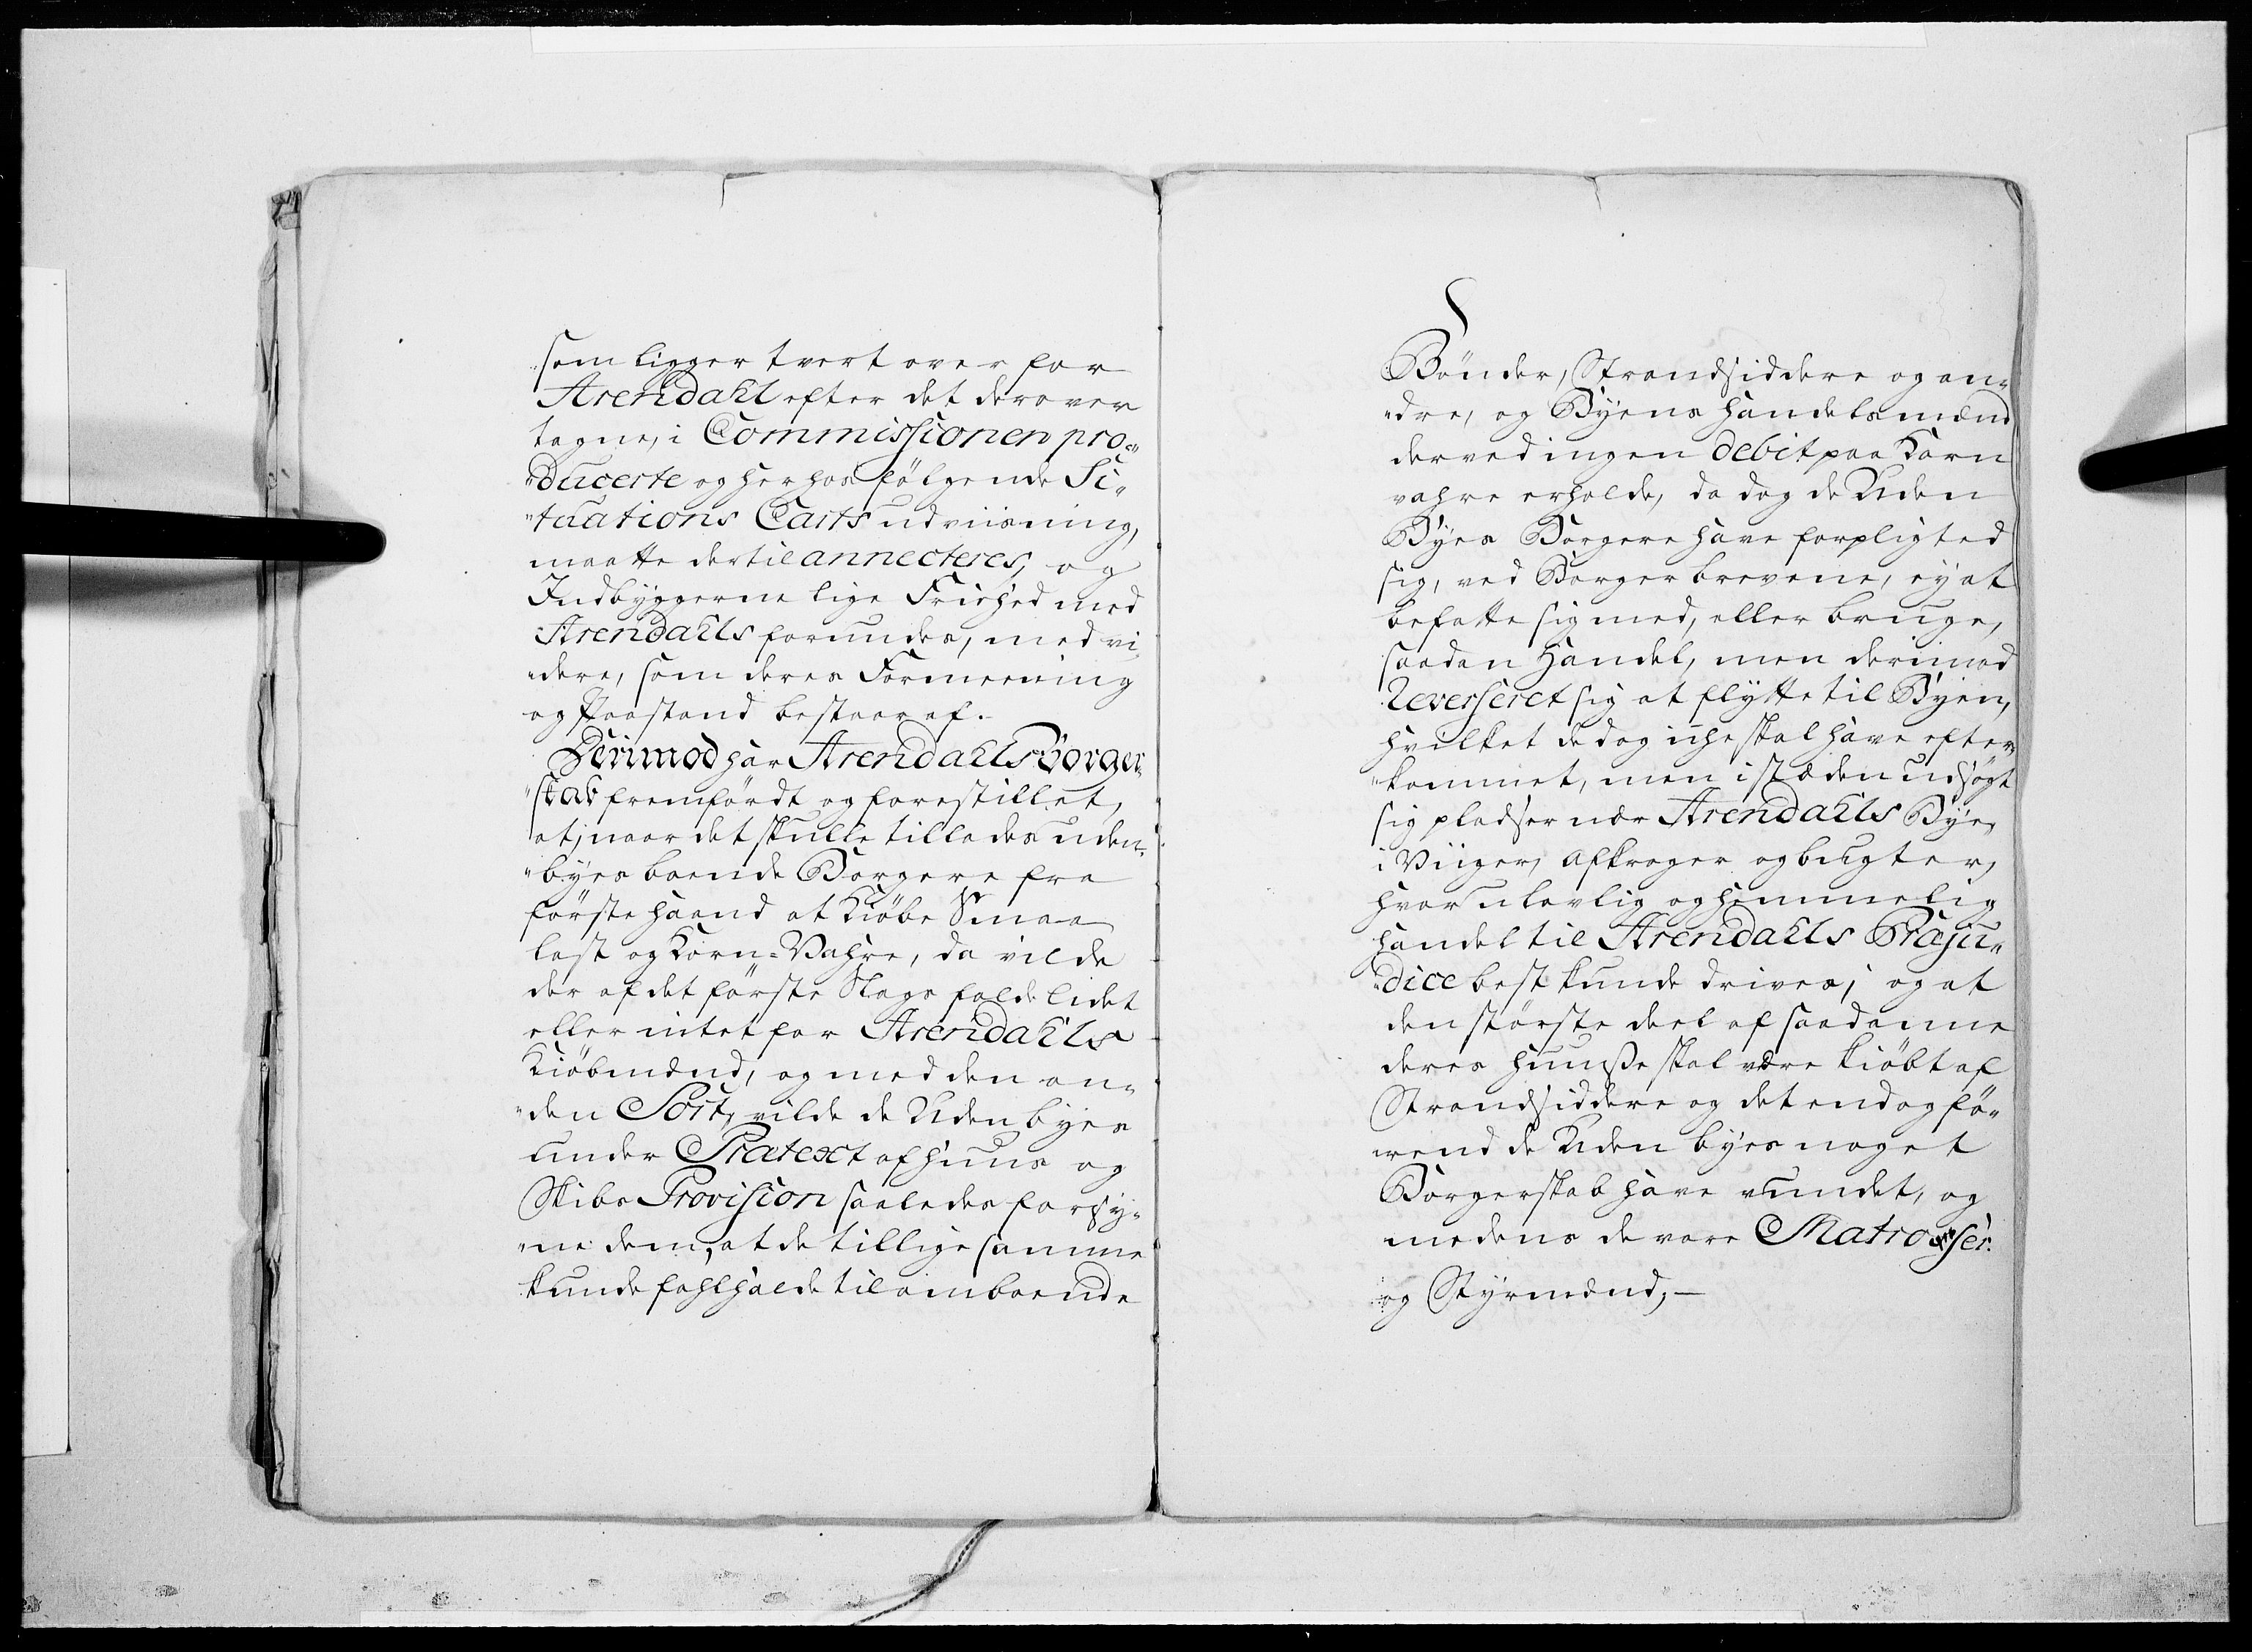 som ligger tvert over for
Arendahl efter det derover
tagne, i Commissionen pro-
ducerte og herhos følgende Si-
tuations Carts udviisning,
maatte dertil annecteres, og
Indbyggerne lige Frihed med
Arendahls forundes, med vi-
dere, som deres Formeening
og Paastand bestaar af.
Derimod har Arendahls Borger-
skab fremfördt og forestillet,
at, naar det skulle tillades uden-
byes boende Borgere fra
förste haand at Kiöbe Smaa
last og Korn-Vahre, da vilde
der af det förste Slags falde lidet
eller intet for Arendahls
Kiöbmænd, og med den an-
den Sort, vilde de Uden byes
under Prætext af huus og
Skibs Provision saaledes forsy-
ne dem, at de tillige samme
kunde fahlholde til omboende
Bönder, Strandsiddere og an-
dre, og Byens Handelsmænd
derved ingen debit paa Korn
vahre erholde, da dog de Uden
Byes Borgere have forpligted
sig, ved Borger brevene, ey at
befatte sig med, eller bruge,
saadan Handel, men derimod
Reverseret sig at flytte til Byen,
hvilket de dog icke skal have efter-
kommet, men i stæden udsögt
sig pladser nær Arendahls Bye,
i Viiger, Afkroger og bugter,
hvor ulovlig og hemmelig
handel til Arendahls Præju-
dice best kunde drives; og at
den störste deel af saadanne
deres huuse skal være kiöbt af
Strandsiddere og det endog fö-
rend de Uden byes noget
Borgerskab have vundet, og
medens de vare Matrosser
og Styrmænd,—